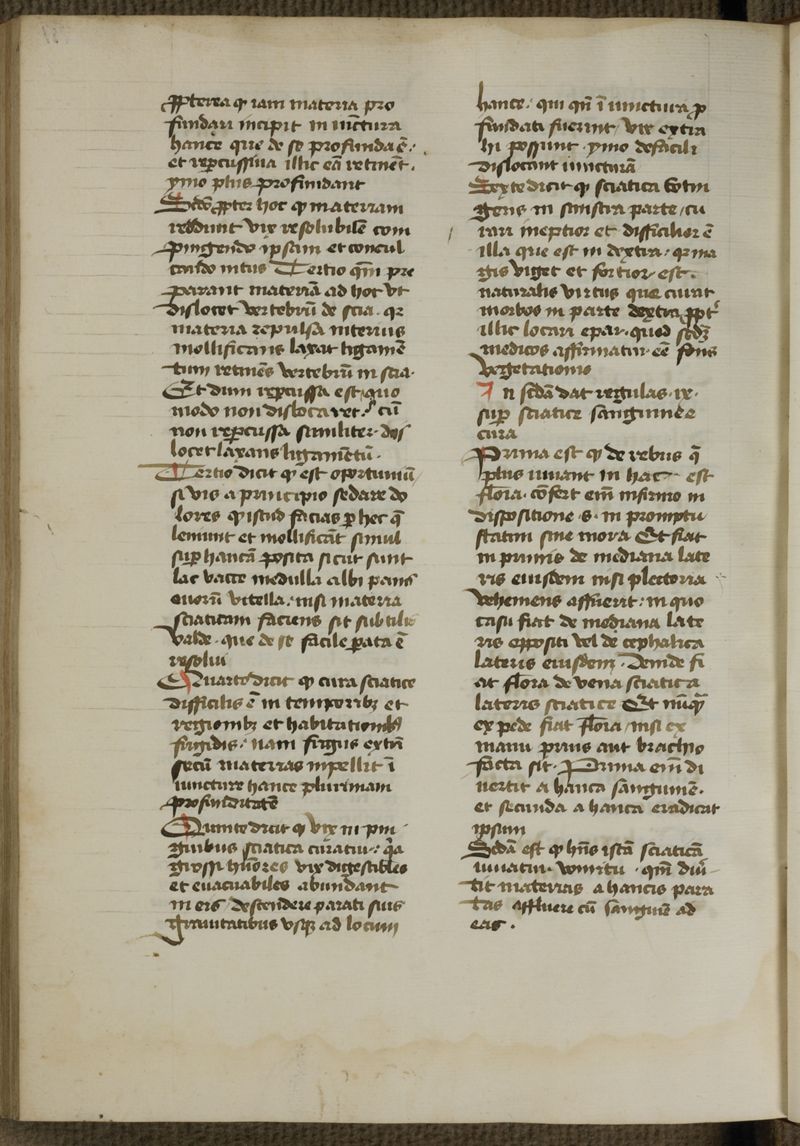 ꝓpterea ꝙ iam materia pro
fundari incipit in iūctura
hance que de se profunda ē.
et reꝑcussiua illic eā retinēt.
ymo plus profundant
Sc̄do ꝓpter hoc ꝙ materiam
reddunt vix resolubilē com
pingendo ipsam et concul
cando intus Tertio qm̄ pre
parant materiā ad hoc vt
dislocet vertebrū de scia. qꝛ
materia repulsa interius
mollificans laxat ligamē
tum retinēs vertebrū in scia.
Et dum reꝑcussa est quo
modo non dislocaret. cū
non reꝑcussa similiter dis
locet laxans ligamētū.
Tertio dicit ꝙ est oportunū
si vis a principio sedare do
lores ꝙ istud facias ꝑ hec q̄
leniunt et mollificāt simul
suꝑ hancā posita sicut sunt
lac vacce medulla albi panis
ouorū vitella. nisi materia
sciaticam faciens sit subtilis
valde. que de se facile ꝑata ē
resolui
Quarto dicit ꝙ cura sciatice
difficilis ē in temporibꝫ et
regionibꝫ et habitationibꝫ
frigidis. nam frigus extrī
secū materias inpellit ī
iuncture hance plurimam
profunditatē
Quinto dicit ꝙ vix in pin
guibus sciatica curatur. q̄a
grossi hūores vix digestibiles
et euacuabiles abundant
in eis descendere parati suis
grauitatibus vsqꝫ ad locum
hance. qui qn̄ ī iunctura ꝓ
fundati fuerint vix extra
hi possunt. ymo defacili
dislocant iuncturā
Sexto dicit ꝙ sciatica
in sinistra parte cu
rari ineptior et difficilior ē
illa que est in dextra. qꝛ ma
gis viget et fortior est.
naturalis virtus que curat
morbos in parte dextra ꝓpt̄
illic locari epar. quod sc̄dꝫ
medicos affirmatur eē fons
vegetationis
In sc̄da dat regulas. re.
suꝑ sciatice sanguinee
cura
Prima est ꝙ de rebus q̄
plus iuuant in hac est
flōia. cōfert em̄ infirmo in
dispositione .s. in promptu
statim sine mora Et fiat
in primis de mediana late
ris eiusdem nisi plectoria
vehemens affuerit. in quo
casu fiat de mediana late
ris oppositi vel de cephalica
lateris eiusdem. Deinde fi
at flōia de vena sciatica
lateris sciatice Et nūꝙ
ex pede fiat flōia nisi ex
manu prius aut brachio
facta sit. Prima em̄ di
uertit a hanca sanguinē.
et secunda a hanca eradicat
ipsum
Sc̄da est ꝙ hn̄s istā sciaticā
iuuatur. vomitu. qm̄ diuer
tit materias a hancis para
tas affluere cū sanguine ad
eas.